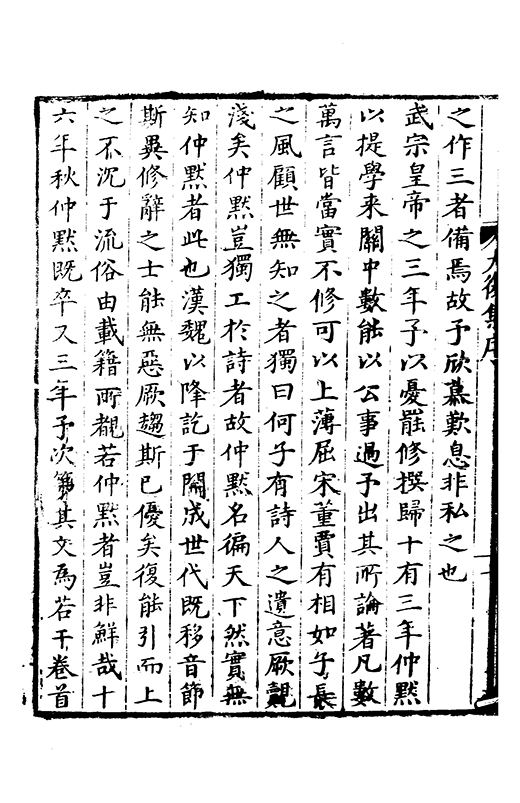 大復集序
之作三者備焉故予欣慕歎息非私之也
武宗皇帝之三年予以憂罷修撰歸十有三年仲默
以提學來關中數能以公事過予出其所論著凡數
萬言皆當實不修可以上薄屈宋董賈有相如子長
之風顧世無知之者獨曰何子有詩人之遺意厥觀
淺矣仲默豈獨工於詩者故仲默名徧天下然實無
知仲默者此也漢魏以降訖于開成世代既移音節
斯異修辭之士能無惡厥趨斯已優矣復能引而上
之不沉于流俗由載籍所覩若仲默者豈非鮮哉十
六年秋仲默既卒又三年予次第其文為若干卷首